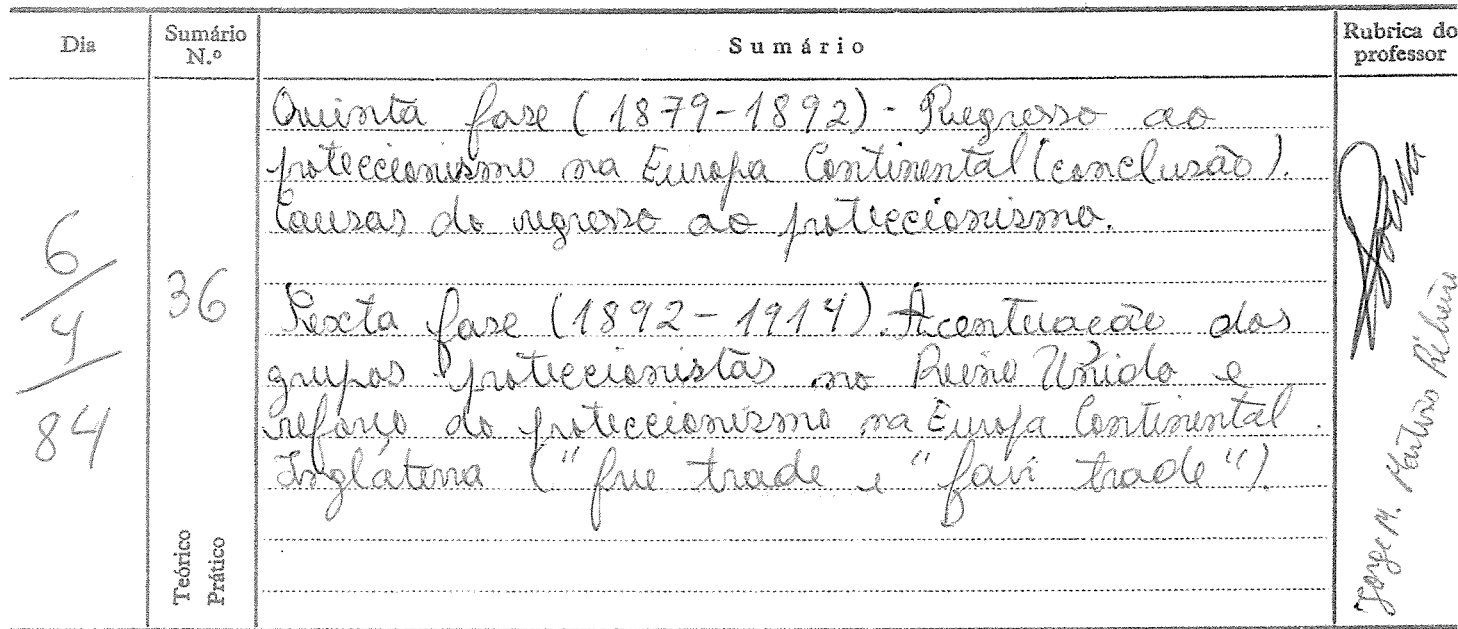 Dia
Sumário N.º
Sumário
Rubrica do professor
6/4/84
36
Teórico
Prático
Quinta fase (1879-1892) - Regresso ao
proteccionismo na Europa Continental (conclusão).
Causas do regresso ao proteccionismo.
Sexta fase (1892-1914). Acentuação dos
grupos proteccionistas no Reino Unido e
reforço do proteccionismo na Europa Continental.
Inglaterra ("free trade e "fair trade").
Jorge M. Martins Ribeiro